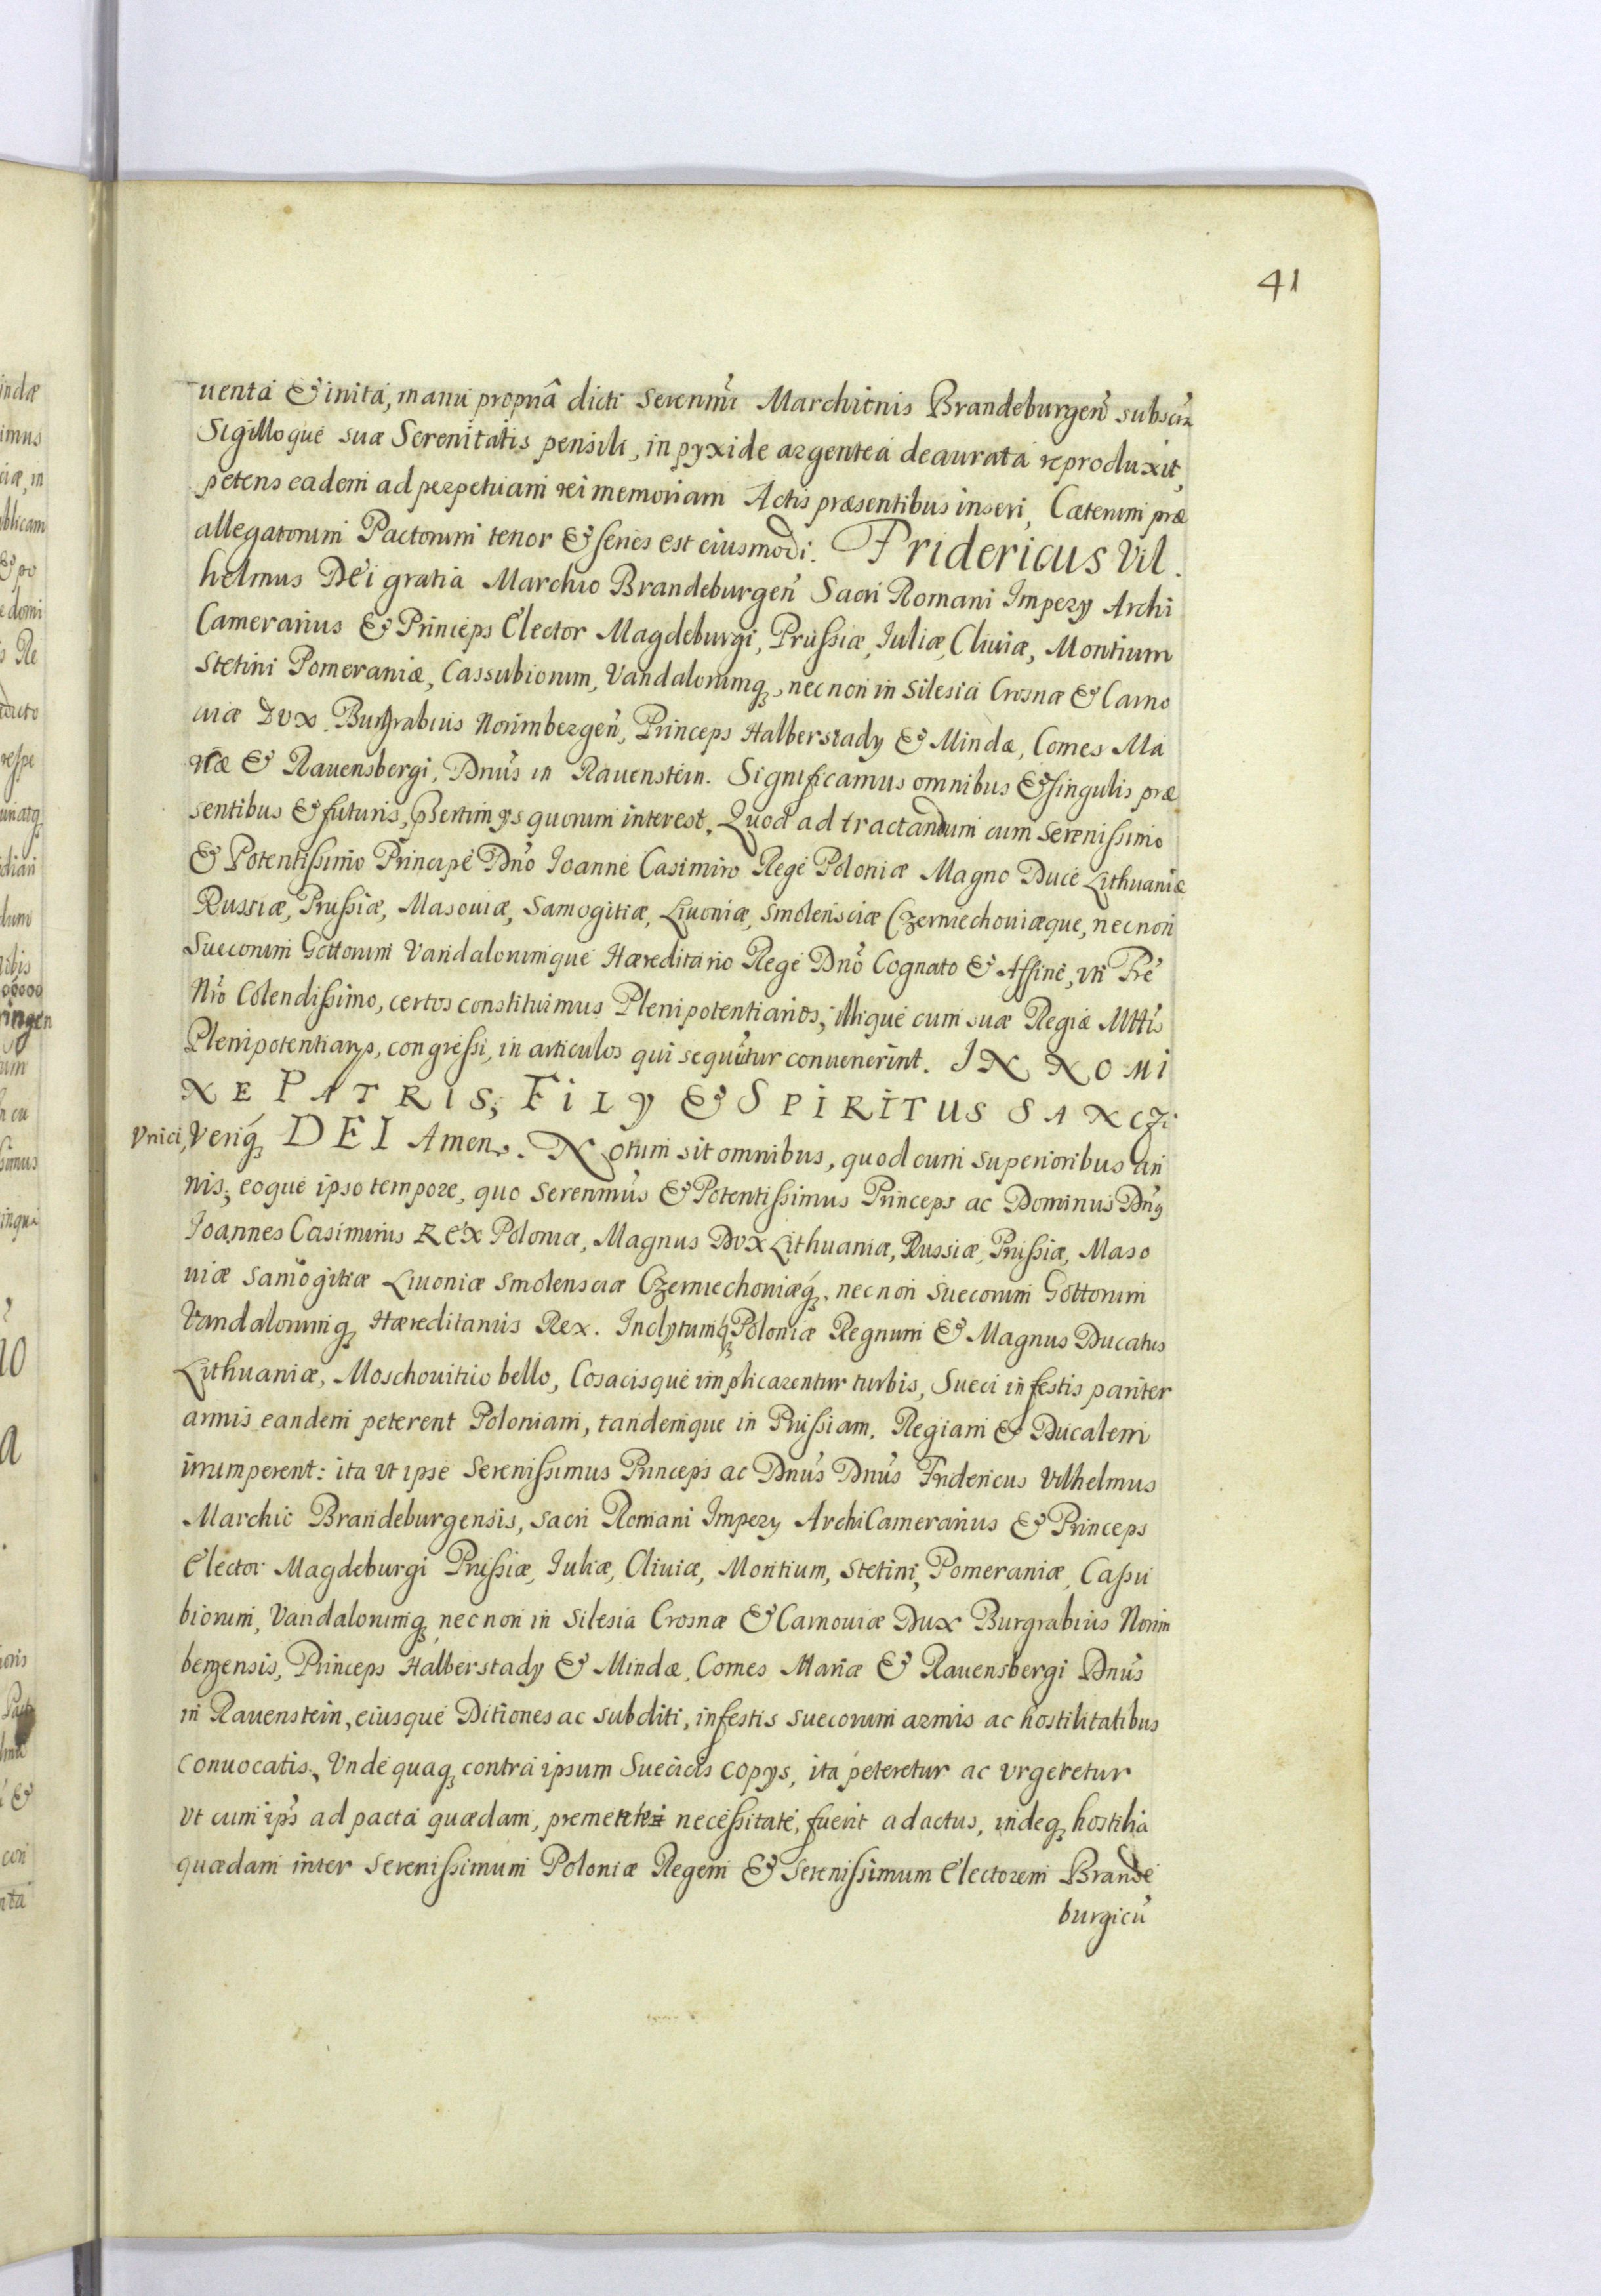 41
uenta & inita, manu propriâ dicti Serenmi Marchionis Brandeburgen subscr̃
Sigilloque suæ Serenitatis pensili, in pyxide argentea deaurata reproduxit,
petens eadem ad perpetuam rei memoriam Actis præsentibus inseri, Cæterum præ
allegatorum Pactorum tenor & series est eiusmodi. Fridericus Vil.
helmus Dei gratia Marchio Brandeburgen Sacri Romani Impery Archi
Camerarius & Princeps Elector Magdeburgi, Prussiæ, Iuliæ, Cliuiæ, Montium
Stetini Pomeraniæ, Cassubiorum, Vandalorumq, nec non in Silesia Crosnæ & Carno
uiæ Dux. Burgrabius Norimbergen, Princeps Halberstady & Mindæ, Comes Ma
riæ & Rauensbergi, Dnus in Rauenstein. Significamus omnibus & singulis præ
sentibus & futuris, quorum interest. Quod ad tractandum cum Serenissimo
& Potentissimo Principe Dno Ioanne Casimiro Rege Poloniæ Magno Duce Lithuaniæ
Russiæ, Prussiæ, Masouiæ, Samogitiæ, Liuoniæ, Smolensciæ Czerniechouiæque, nec non
Suecorum Gottorum Vandalorumque Hæreditario Rege Dno Cognato & Affine, uti Fre
Nro Colendissimo, certos constituimus Plenipotentiarios, illique cum suæ Regiæ Mttis
Plenipotentiarys, congressi, in articulos qui sequntur conuenerint. IN NOMI
NE PATRIS, FILY & SPIRITUS SANCTI
Vnici, Veriq DEI Amen. Notum sit omnibus, quod cum superioribus an
nis, eoque ipso tempore, quo Serenmus & Potentissimus Princeps ac Dominus Dnus
Ioannes Casimirus REX Poloniæ, Magnus Dux Lithuaniæ, Russiæ, Prussiæ, Maso
uiæ Samogitiæ Liuoniæ Smolensciæ Czerniechoniæq, nec non Suecorum Gottorum
Vandalorumq Hæreditarius Rex. Inclytumq Poloniæ Regnum & Magnus Ducatus
Lithuaniæ, Moschouitico bello, Cosacisque implicarentur turbis, Sueci infestis pariter
armis eandem peterent Poloniam, tandemque in Prussiam, Regiam & Ducalem
irrumperent: ita ut ipse Serenissimus Princeps ac Dnus Dnus Fridericus Vilhelmus
Marchio Brandeburgensis, Sacri Romani Impery ArchiCamerarius & Princeps
Elector Magdeburgi Prussiæ, Iuliæ, Cliuiæ, Montium, Stetini, Pomeraniæ, Cassu
biorum, Vandalorumq nec non in Silesia Crosnæ & Carnouiæ Dux Burgrabius Norim
bergensis, Princeps Halberstady & Mindæ, Comes Mariæ & Rauensbergi Dnus
in Rauenstein, eiusque Ditiones ac subditi, infestis suecorum armis ac hostilitatibus
conuocatis, Vndequaq contra ipsum Suecicis copys, ita peteretur ac urgeretur
ut cum ips ad pacta quædam, necessitate, fuerit adactus, indeq hostilia
quædam inter Serenissimum Poloniæ Regem & Serenissimum Electorem Brande
burgicu